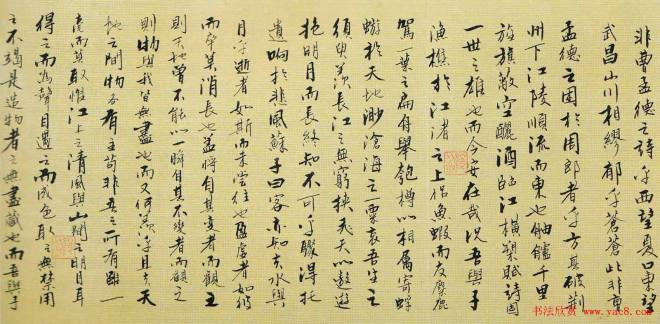 非曹孟德之詩乎西望夏口東望
武昌山川相繆郁乎蒼蒼此非曹
孟德之困於周郎者乎方其破荊
州下江陵順流而東也舳艫千里
旌旗蔽空釃酒臨江橫槊賦詩固
一世之雄也而今安在哉況吾與子
漁樵於江渚之上侶魚蝦而友麋鹿
駕一葉之扁舟舉匏樽以相屬寄蜉
蝣於天地渺滄海之一粟哀吾生之
須臾羨長江之無窮挾飛天以遨遊
抱明月而長終知不可乎驟得托
遺響於悲風蘇子曰客亦知夫水與
月乎逝者如斯而未嘗往也盈虛者如彼
而卒莫消長也蓋將自其變者而觀之
則天地曾不能以一瞬自其不變者而觀之
則物與我皆無盡也而又何羨乎且夫天
地之間物各有主苟非吾之所有雖一
毫而莫取惟江上之清風與山間之明月耳
得之而為聲目遇之而成色取之無禁用
之不竭是造物者之無盡藏也而吾與子
书法欣赏
www.yac8.com